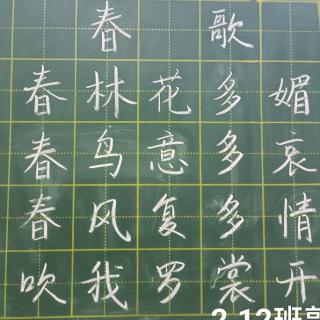 春歌
春林花多媚
春鸟意多哀
春风复多情
吹我罗裳开
2.12班